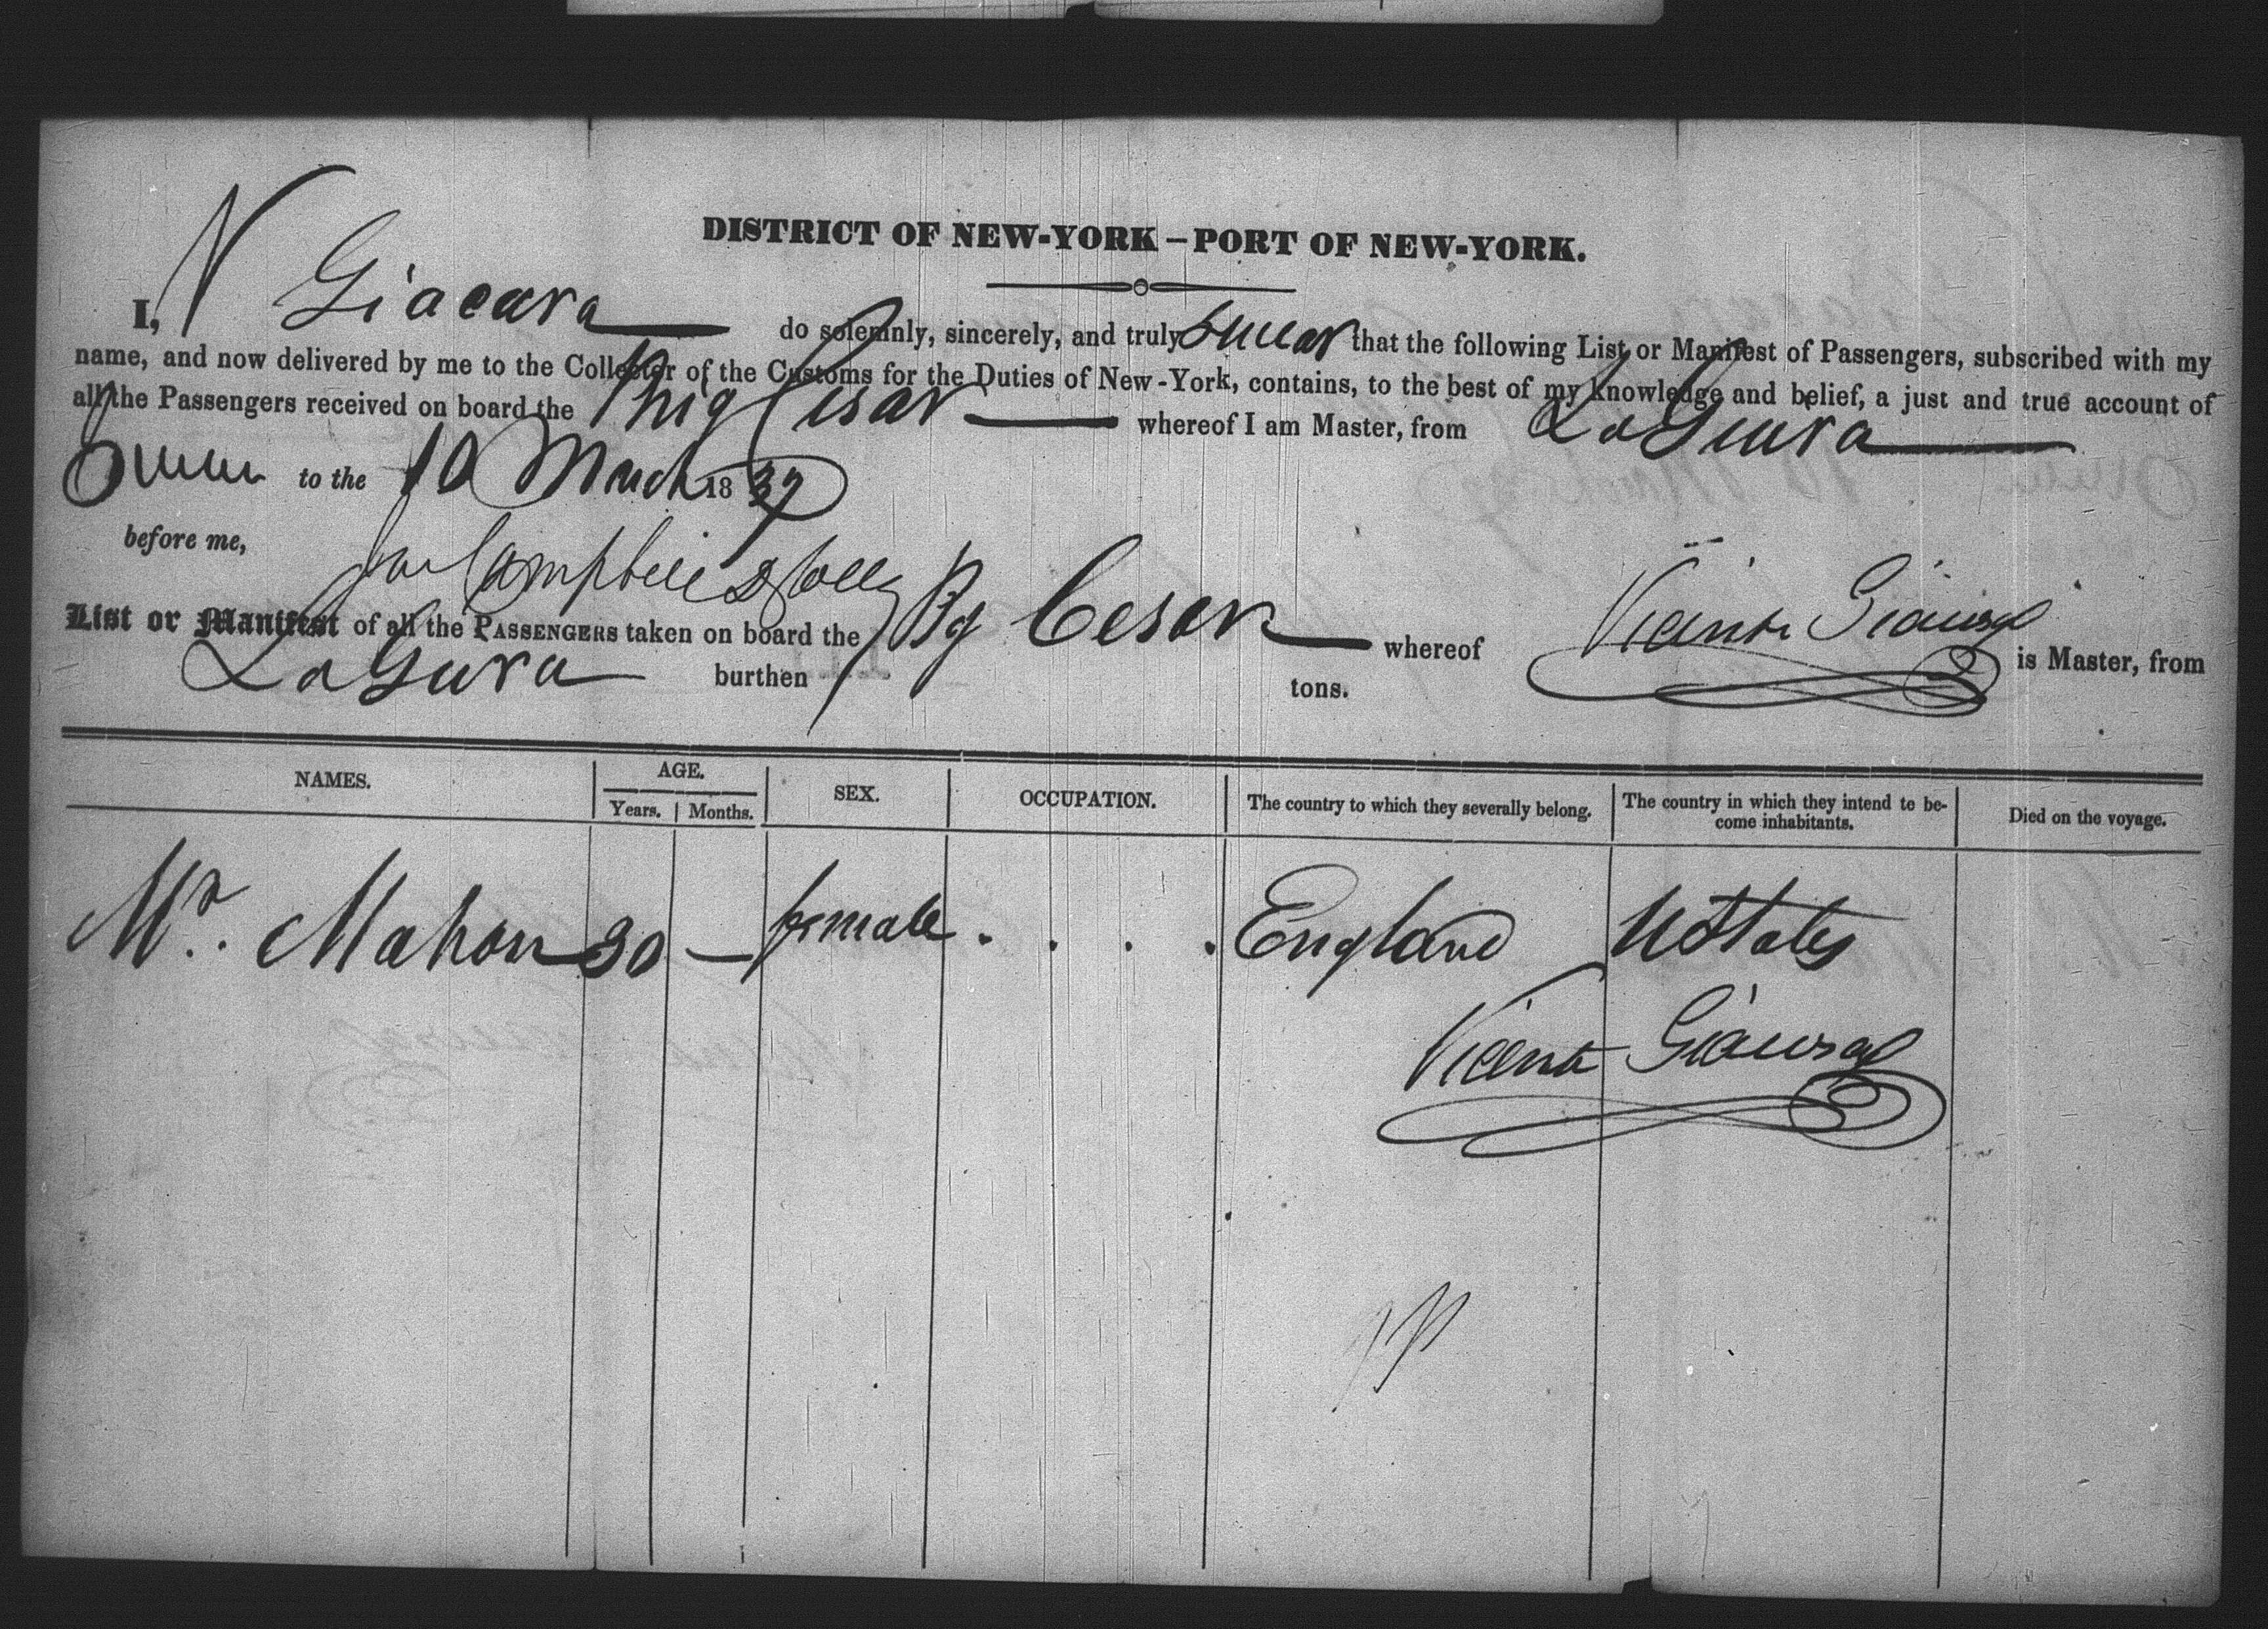 DISTRICT OF NEW-YORK – PORT OF NEW-YORK.
I, V Giacara do solemnly, sincerely, and truly swear that the following List or Manifest of Passengers, subscribed with my
name, and now delivered by me to the Collector of the Customs for the Duties of New-York, contains, to the best of my knowledge and belief, a just and true account of
all the Passengers received on board the Brig Cesar whereof I am Master, from LaGuira
Sworn to the 10 March 1837
before me, Campbell
List or Manifest of all the PASSENGERS taken on board the Bg Cesar whereof Vicente is Master, from
LaGuira burthen tons.
NAMES. AGE. Years. Months. SEX. OCCUPATION. The country to which they severally belong. The country in which they intend to become inhabitants. Died on the voyage.
Mr. Mahon 30 — female . . . . England UStates
Vicente